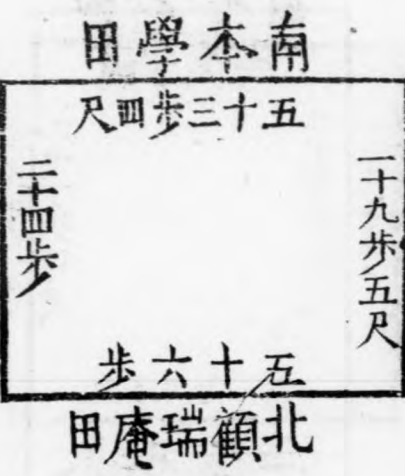 南本學田
五十三步四尺
一十九步五尺
二十四步
五十六步
北顧瑞庵田